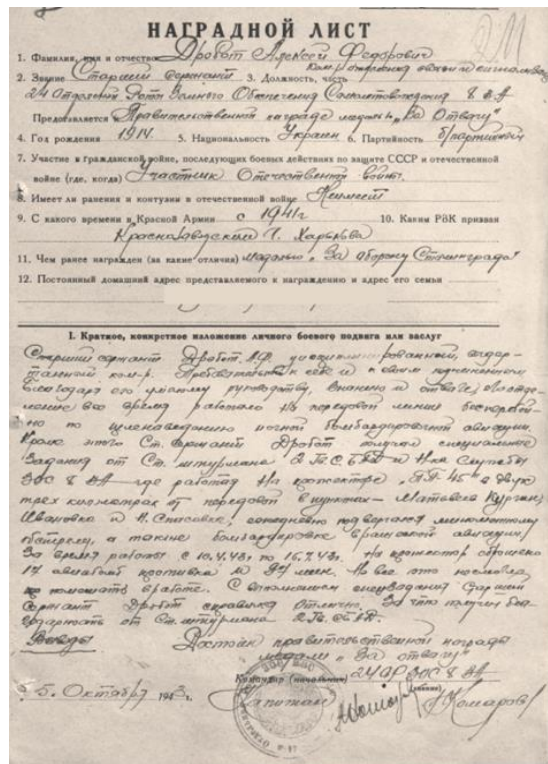 211
НАГРАДНОЙ ЛИСТ
1. Фамилия, имя и отчество Дробот Алексей Федорович
2. Звание Старший сержант 3. Должность, часть
24 Отдельной Роты Земного Обеспечения Самолетовождения 8 ВА
Представляется Правительственной награде медаль "За Отвагу"
4. Год рождения 1914. 5. Национальность Украин 6. Партийность б/партийный
7. Участие в гражданской войне, последующих боевых действиях по защите СССР и отечественной
войне (где, когда) Участник Отечественной войны
8. Имеет ли ранения и контузии в отечественной войне Не имеет
9. С какого времени в Красной Армии с 1941г 10. Каким РВК призван
Краснозаводским г. Харькова
11. Чем ранее награжден (за какие отличия) Медалью "За оборону Сталинграда"
12. Постоянный домашний адрес представляемого к награждению и адрес его семьи
I. Краткое, конкретное изложение личного боевого подвига или заслуг
Старший сержант Дробот А.Ф. дисциплинированный,
ком-р. к себе и к своим подчиненным
Благодаря его умелому руководству, знанию и отваге,
все время работало на передовой линии
но по целенаведению ночной бомбардировочной авиации.
Кроме этого Ст. сержант Дробот получал специальные
Задания от Ст. штурмана 2 Гв. и Н-ка Службы
ЗОС 8 ВА где работал на прожекторе в двух
трех километрах от передовой в пунктах - Матвеев Курган,
Ивановка и Н. Спасовка, ежедневно подвергался минометному
обстрелу, а также бомбардировке вражеской авиации
За время работы с 10.4.43г по 16.7.43г. На прожектор сброшено
17 авиабомб противника и 97 мин. Но все это
помешать в работе. С выполнением спецзадания Старший
сержант Дробот справился отлично. За что получил
от Ст. штурмана 2 Гв.
Выводы Достоин правительственной награды
медали "За отвагу"
Командир (начальник) 24 ОР ЗОС 8 ВА
5. Октября 1943г. Капитан (Комаров)